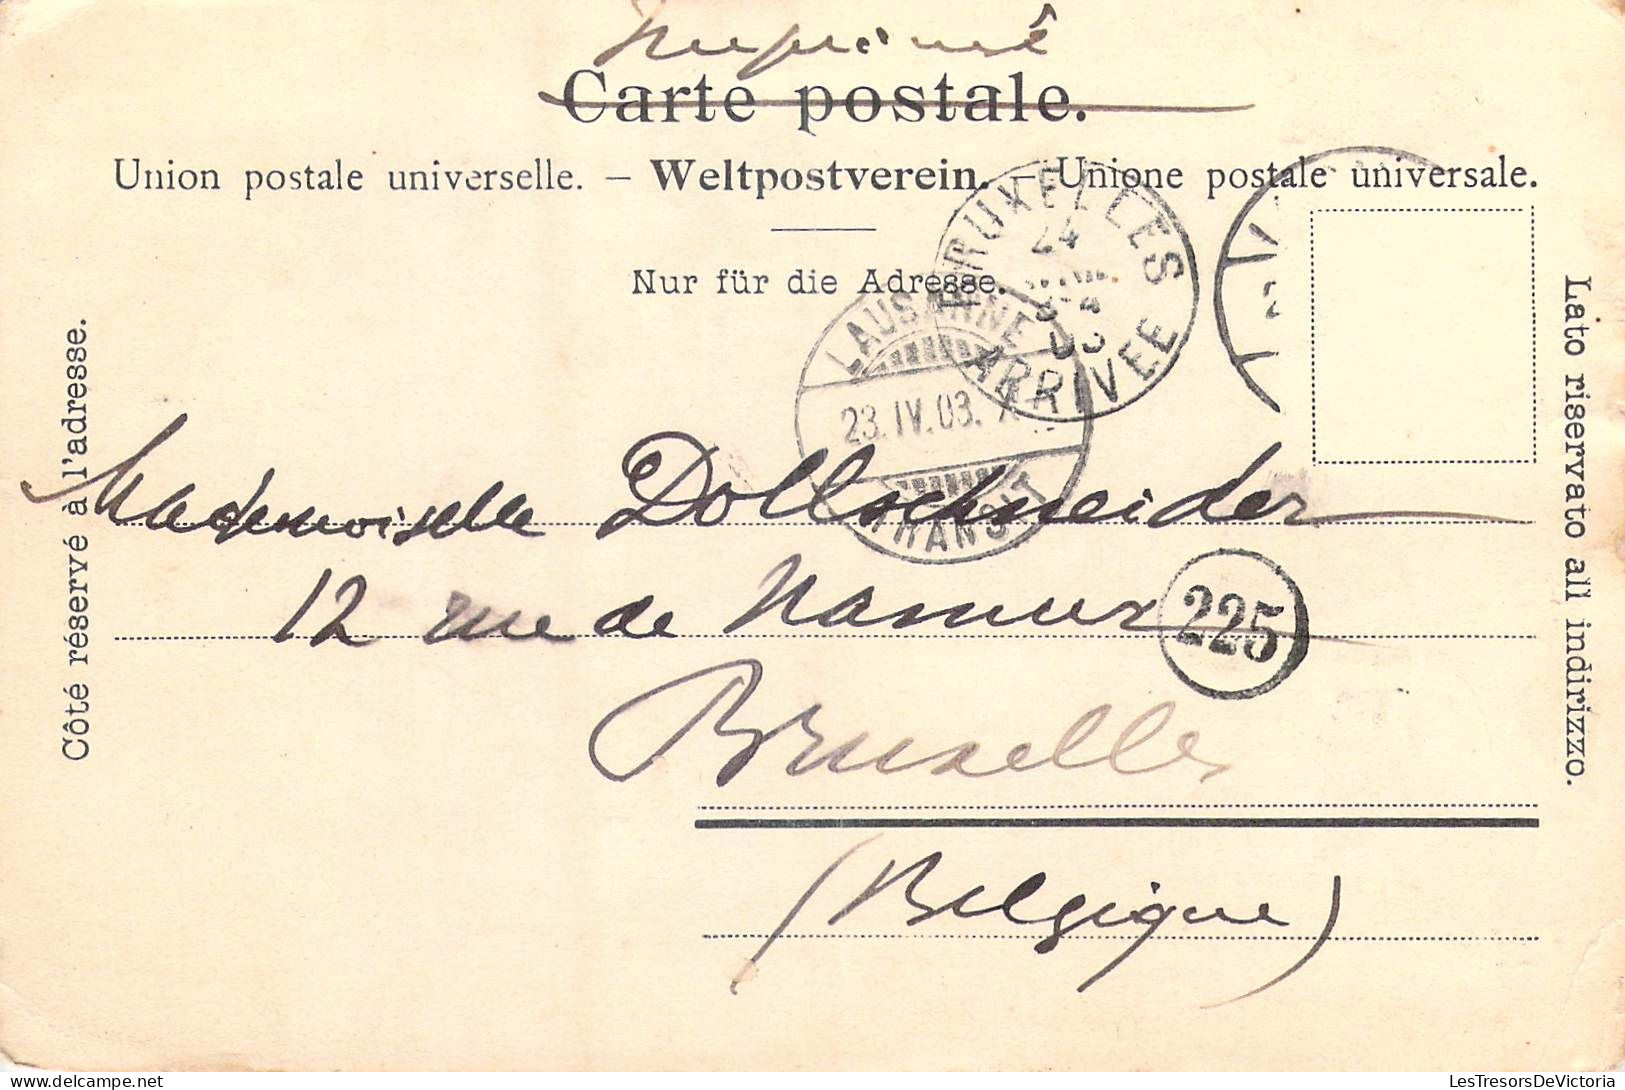 Imprimé
Carte postale.
Union postale universelle. – Weltpostverein. – Unione postale universale.
Nur für die Adresse.
BRUXELLES
24
ARRIVEE
LAUSANNE
23.IV.03.
TRANSIT
Côté réservé à l'adresse.
Lato riservato all indirizzo.
Mademoiselle Dollschneider
12 rue de Namur
225
Bruxelles
(Belgique)
LesTresorsDeVictoria